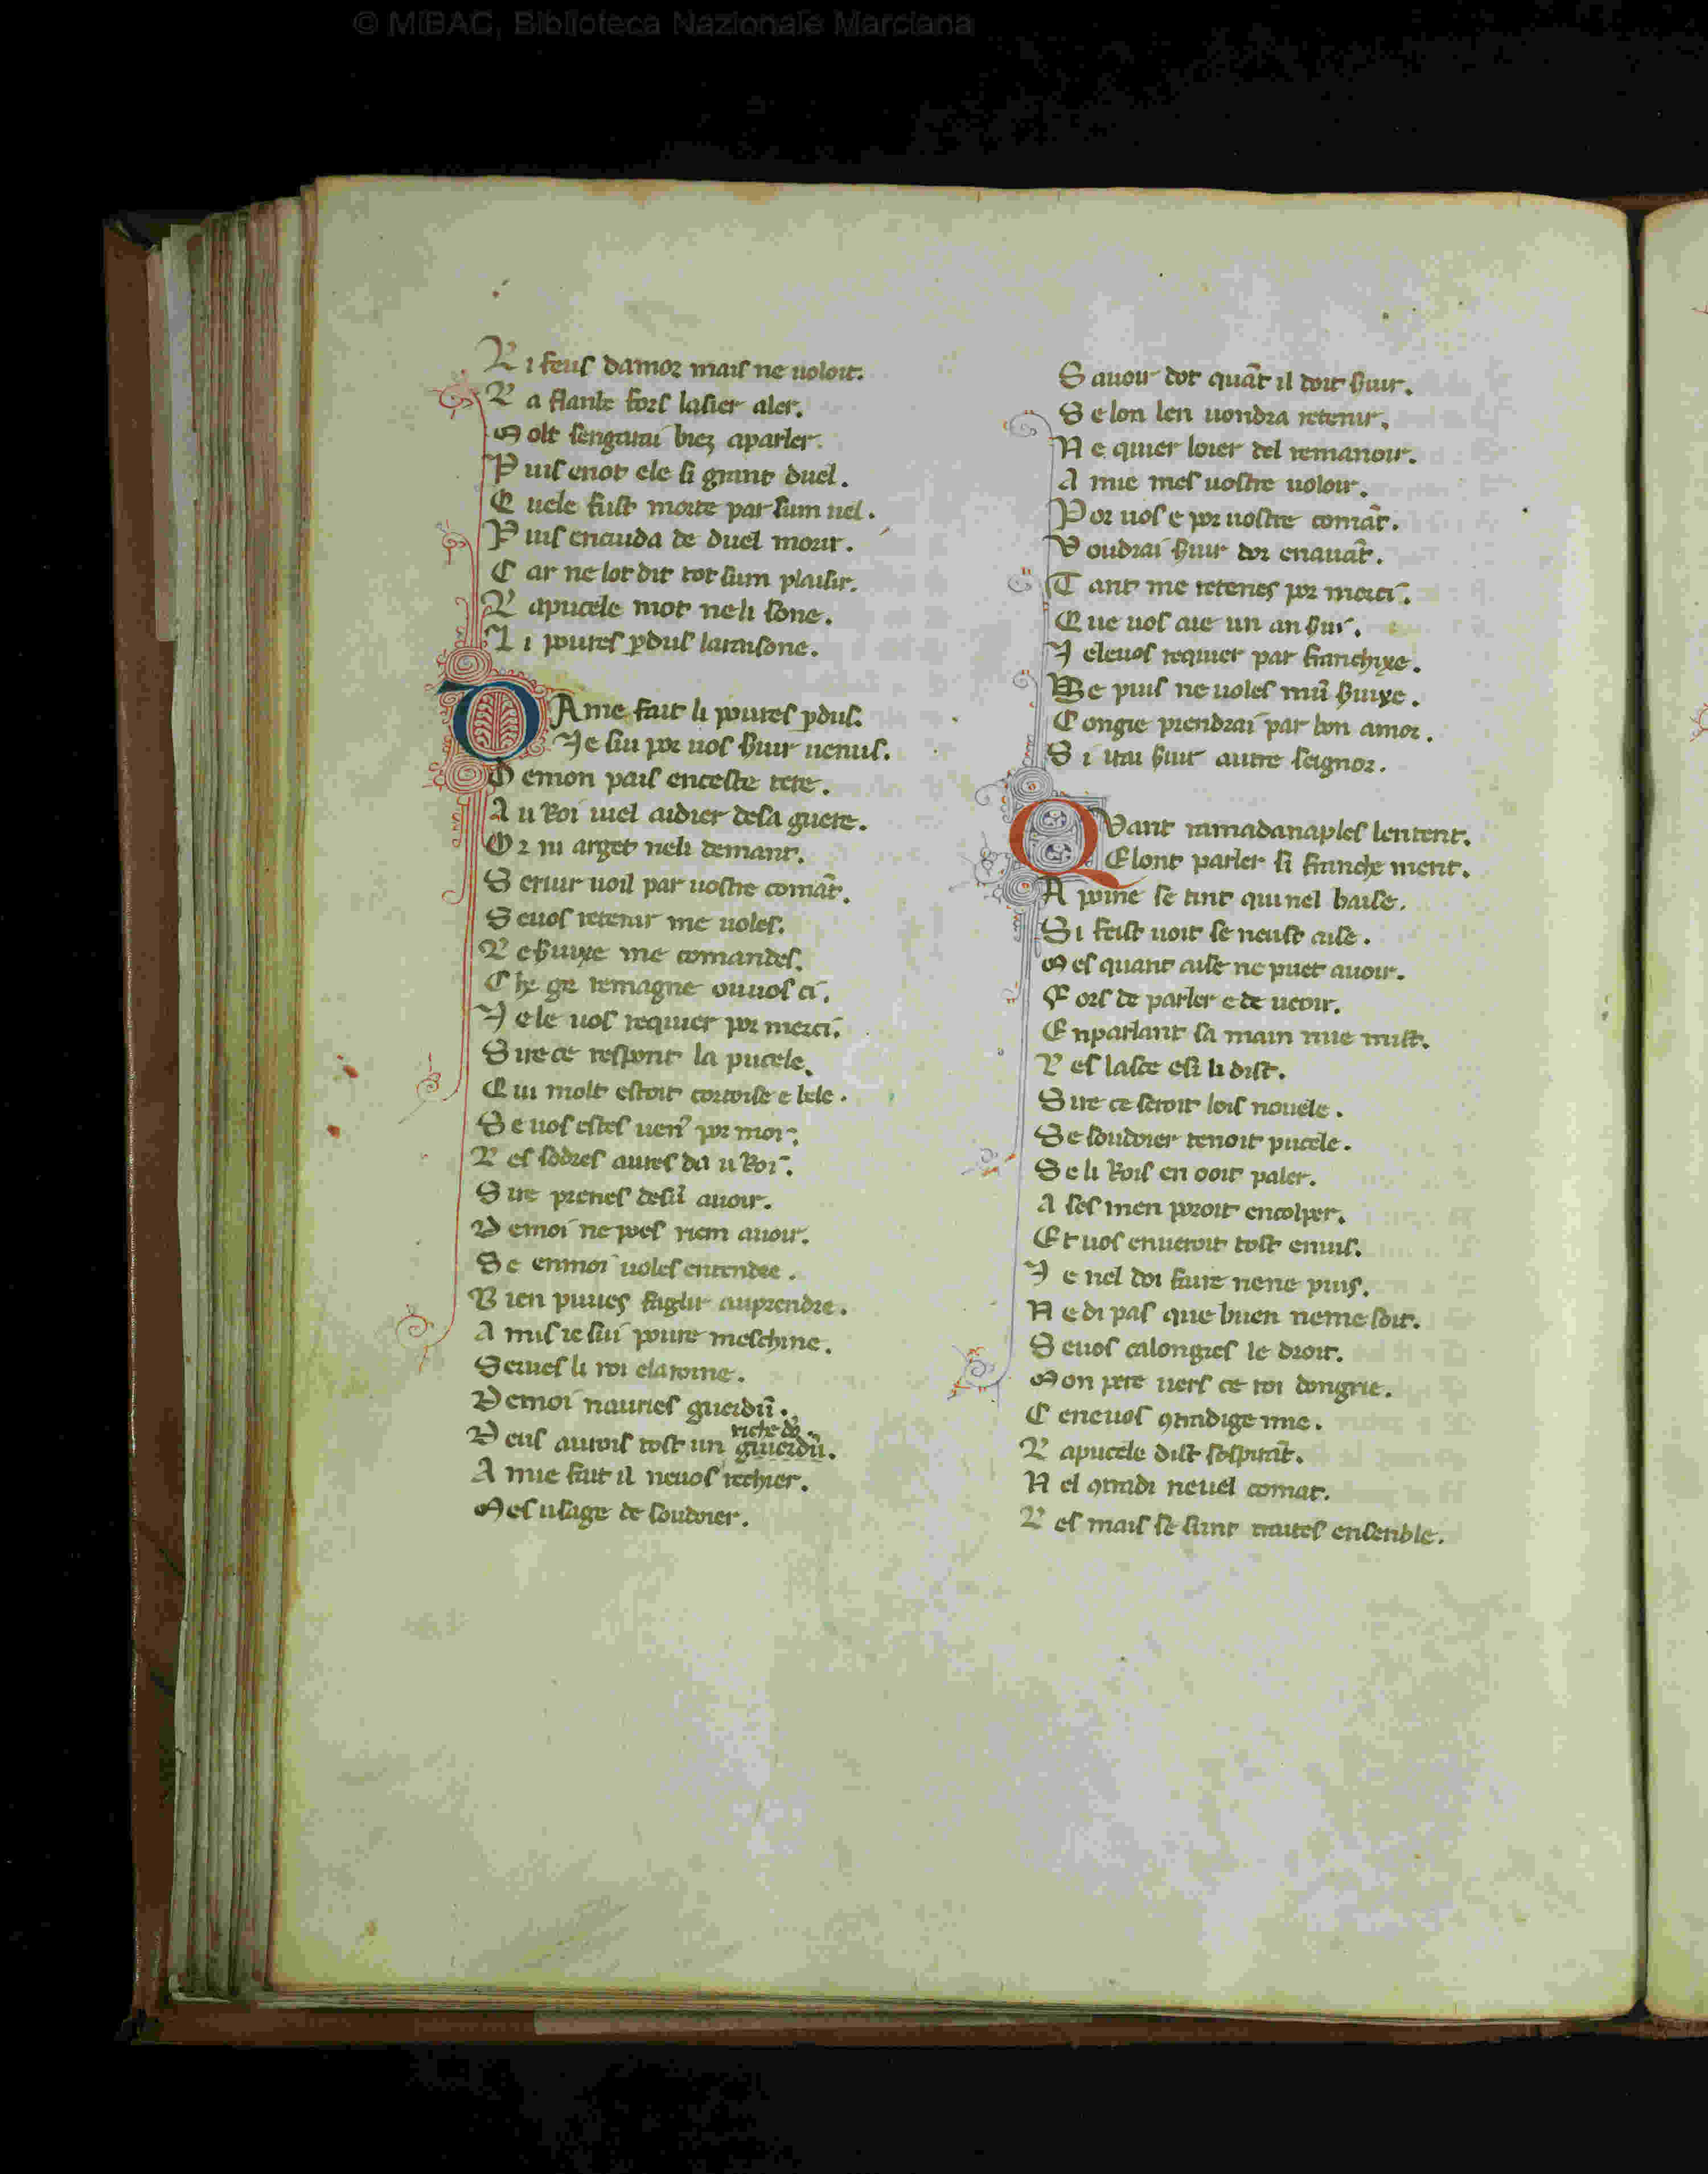 © MiBAC, Biblioteca Nazionale Marciana
L i feus damor mais ne voloit.
L a flanbe fors lasier aler.
M olt sengarai biez aparler.
P uis enot ele si grant duel.
Q uele fust morte par sum uel.
P uis encuida de duel morir.
C ar ne lot dit tot sum plaisir.
L apucele mot neli sone.
L i poures ꝑdus laraisone.
DAme fait li poures ꝑdus.
Je sui por uos ẜuir uenus.
D emon pais enceste tere.
A u Roi uiel aidier desa guere.
O r ni arget neli demant.
S eruir uoil par uostre comāt.
S euos retenir me uoles.
L eẜuixe me comandes.
C he ge remagne ouuos ci.
J ele uos requier por merci.
S ire ce respont la pucele.
Q ui molt estoit cortoise e bele.
S e uos estes uen᾽ por moi.
L es sodres aures da u Roi.
S ire prenes desū auoir.
D emoi ne poes riem auoir.
S e enmoi uoles entendre.
B ien puues faglir auprendre.
A mis ie sui poure meschine.
S erues li roi elaroine.
D emoi nauries guerdū.
riche dō.
D eus aurois tost un guierdū.
A mie fait il neuos rechier.
M es usage de soudoier.
S auoir dot quāt il doit ẜuir.
S e lon len uondra retenir.
N e quier loier del remanoir.
A mie mes uostre uoloir.
P or uos e por uostre comāt.
V oudrai ẜuir dor enauāt.
T ant me retenes por merci.
Q ue uos aie un an ẜui.
J eleuos requier par franchixe.
S e puis ne uoles mū ẜuixe.
C ongie prendrai par bon amor.
S i irai ẜuir autre seignor.
QVant ramadanaples lentent.
Elont parler si franche ment.
A poine se tint quinel baise.
S i feist uoir se neust aise.
M es quant aise ne puet auoir.
F ors de parler e de ueoir.
E nparlant sa main nue mist.
L es lasce esi li dist.
S ire ce seroit lois nouele.
S e soudoier tenoit pucele.
S e li Rois en ooit paler.
A ses men poroit encolper.
E t uos enueroit tost enuis.
J e nel doi faire nene puis.
N e di pas que buen neme soit.
S euos calongies le droit.
M on pere uers ce roi dongrie.
C eneuos ꝯtradige mie.
L apucele dist sospirāt.
N el ꝯtradi neuel comat.
L es mais se sunt traites ensenble.